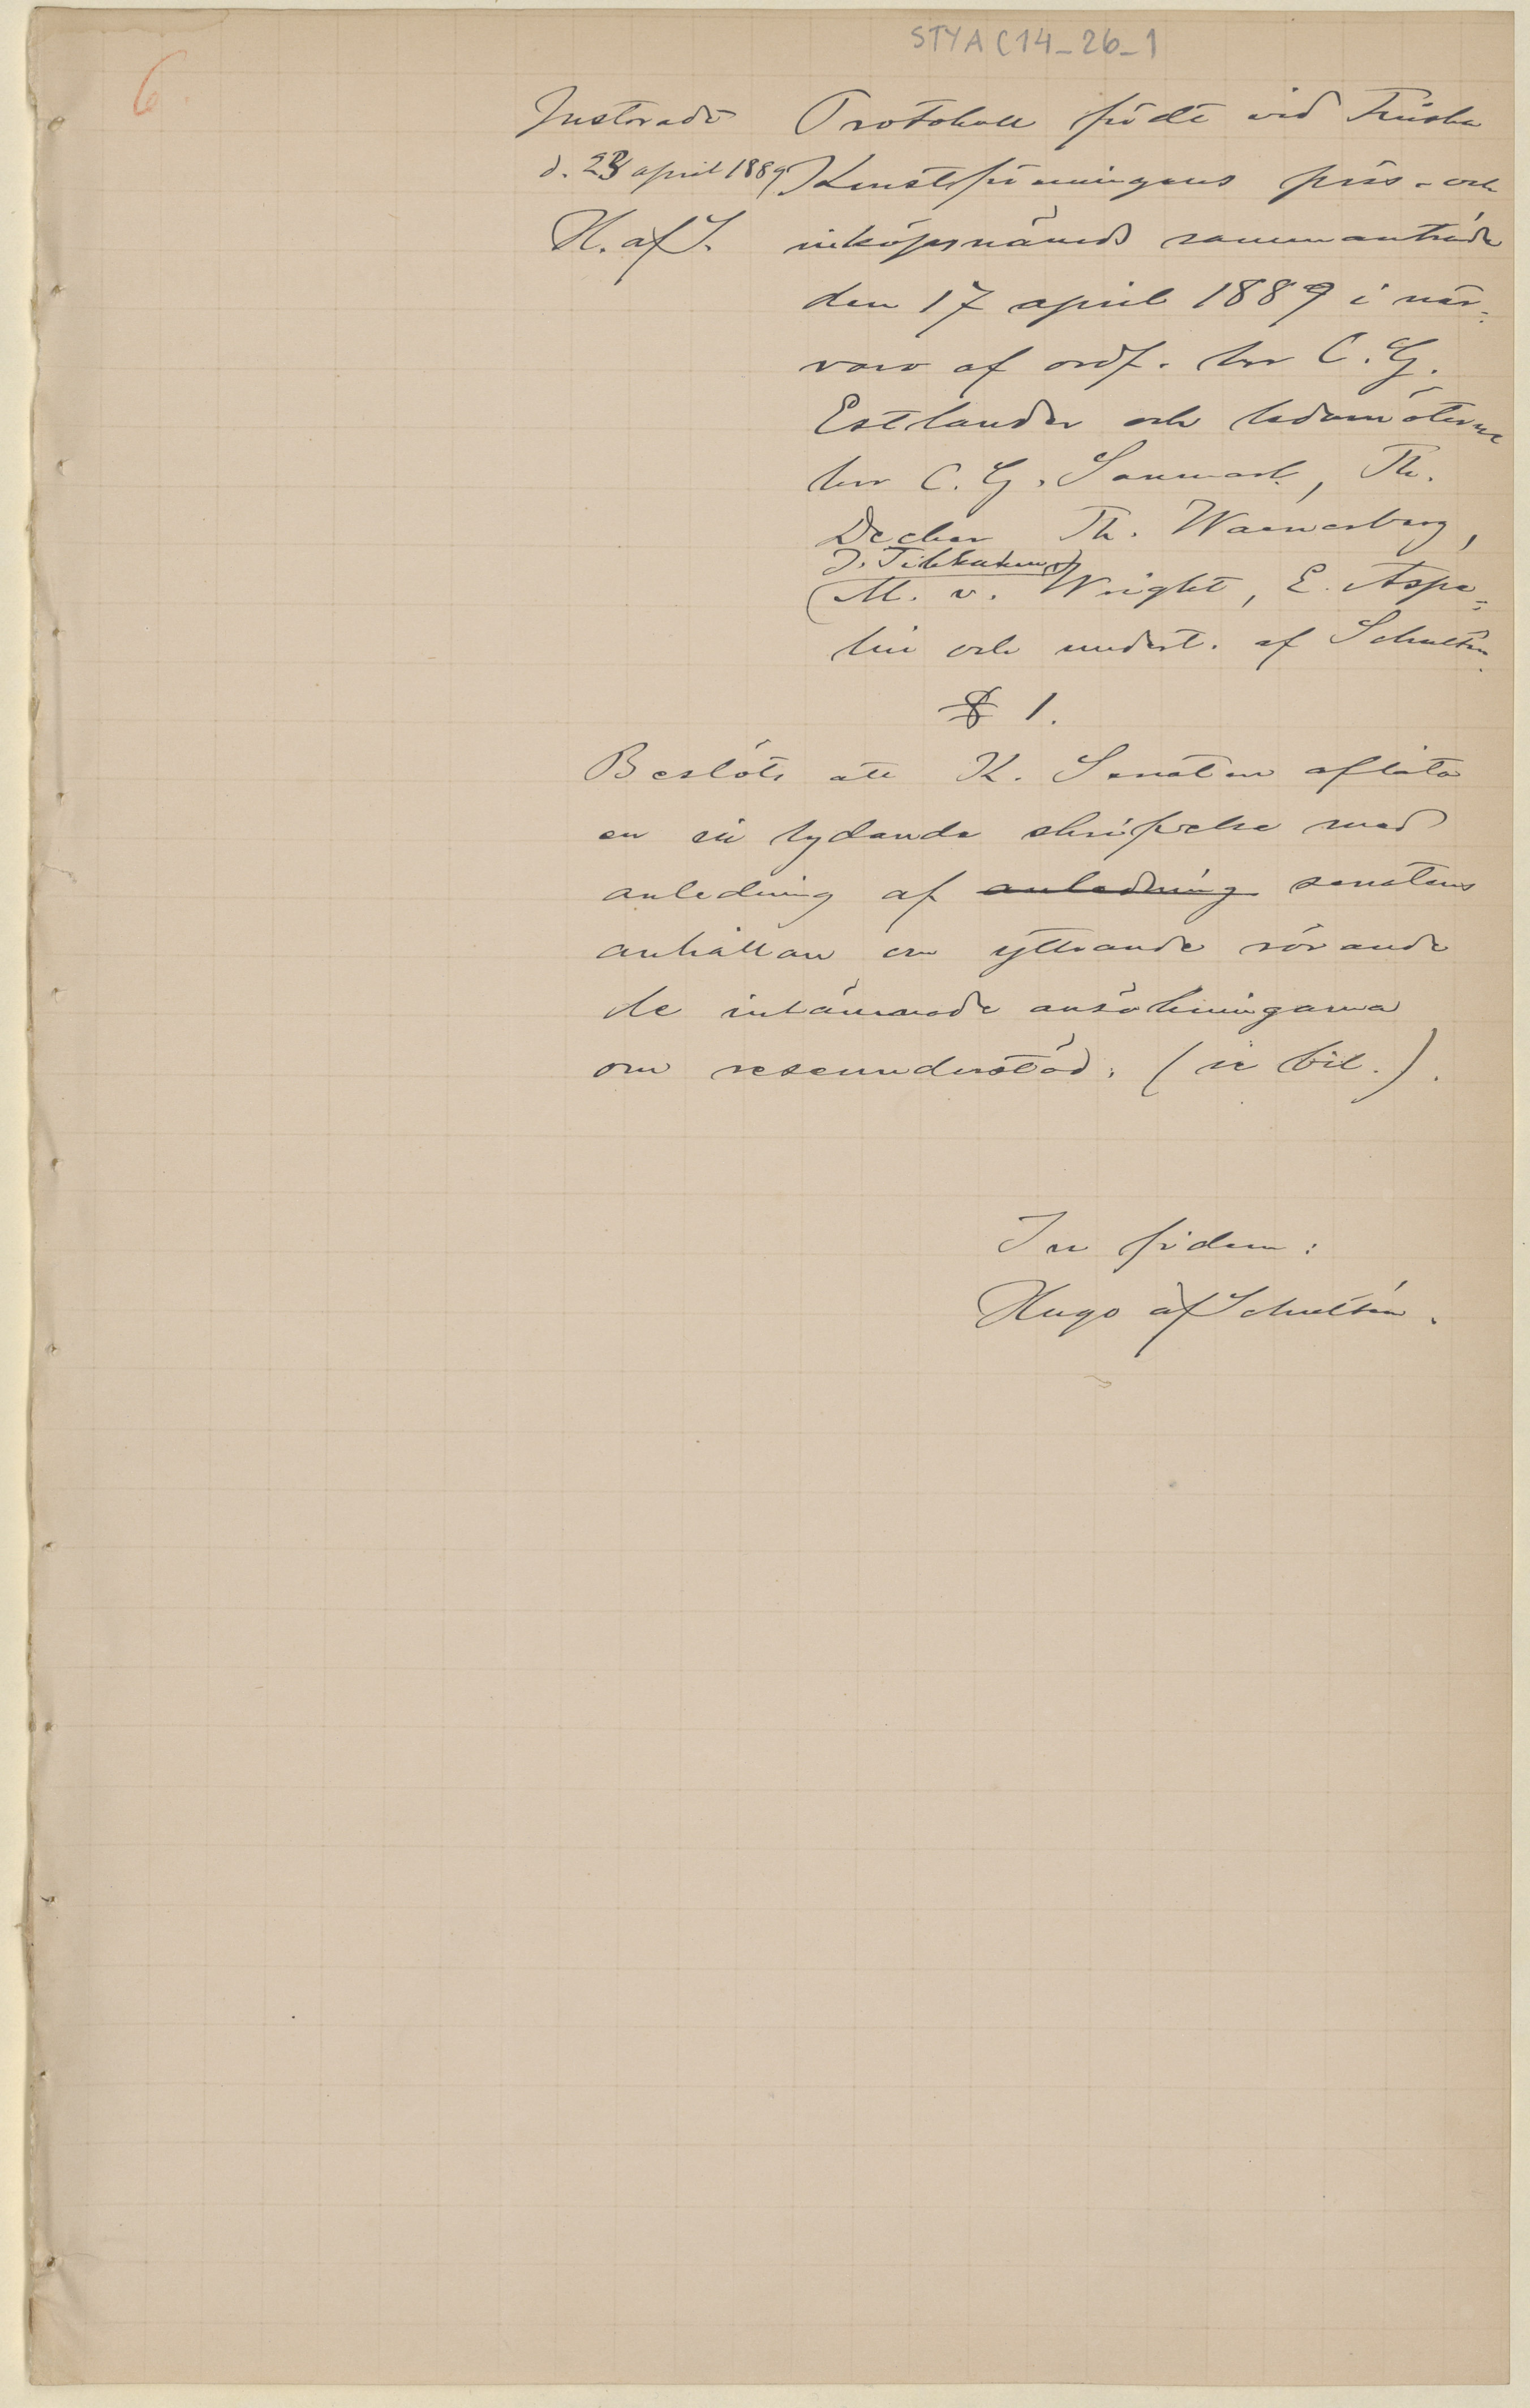 STYA C14_26_1
6.
Justeradt
d. 23 april 1889
H. af S.
Protokoll fördt vid Finska
Konstföreningens pris- och
inköpsnämnds sammanträde
den 17 april 1889 i när-
varo af ordf. herr C. G.
Estlander och ledamöterne
herr C. G. Sanmark, Th.
Decker Th. Waenerberg,
J. Tikkanen
M. v. Wright, E. Aspe-
lin och undert. af Schultén.
§ 1.
Beslöts att K. Senaten aflåta
en så lydande skrifvelse med
anledning af anledning senatens
anhållan om yttrande rörande
de inlämnade ansökningarna
om reseunderstöd. (se bil.).
In fidem:
Hugo af Schultén.